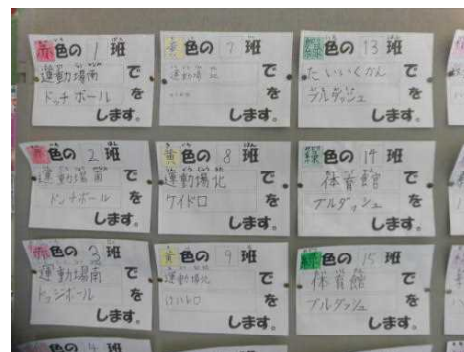 赤色の 1 班
運動場南 で
ドッチボール を
します。
黄色の 7 班
運動場北 で
を
します。
緑色の 13 班
たいいくかん で
ブルダッシュ を
します。
赤色の 2 班
運動場南 で
ドッチボール を
します。
黄色の 8 班
運動場北 で
ケイドロ を
します。
緑色の 14 班
体育館 で
ブルダッシュ を
します。
赤色の 3 班
運動場南 で
ドッジボール を
します。
黄色の 9 班
運動場北 で
けいドロ を
します。
緑色の 15 班
体育館 で
ブルダッシュ を
します。
色の 4 班
色の 10 班
色の 16 班